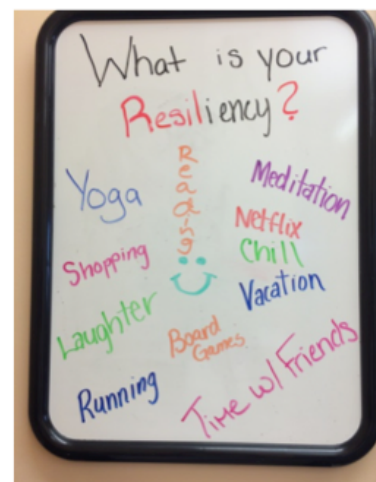 What is your
Resiliency?
Reading
Yoga
Meditation
Netflix
Chill
Shopping
Vacation
Laughter
Board
Games
Running
Time w/ Friends